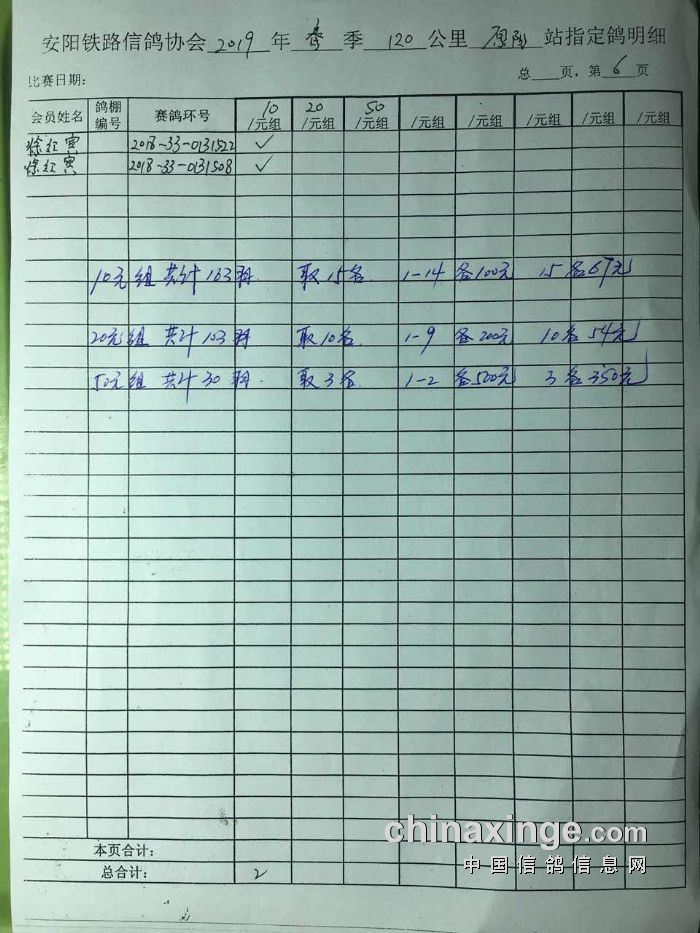 安阳铁路信鸽协会 2019 年 春 季 120 公里 原阳 站指定鸽明细
比赛日期: 总 页，第 6 页
会员姓名 鸽棚编号 赛鸽环号 10/元组 20/元组 50/元组 /元组 /元组 /元组 /元组 /元组
徐红寅 2018-33-0131522 ✓
徐红寅 2018-33-0131508 ✓
10元组 共计163羽 取15名 1-14 各100元 15名67元
20元组 共计103羽 取10名 1-9 各200元 10名54元
50元组 共计30羽 取3名 1-2 各500元 3名350元
本页合计:
总合计: 2
chinaxinge.com
中国信鸽信息网